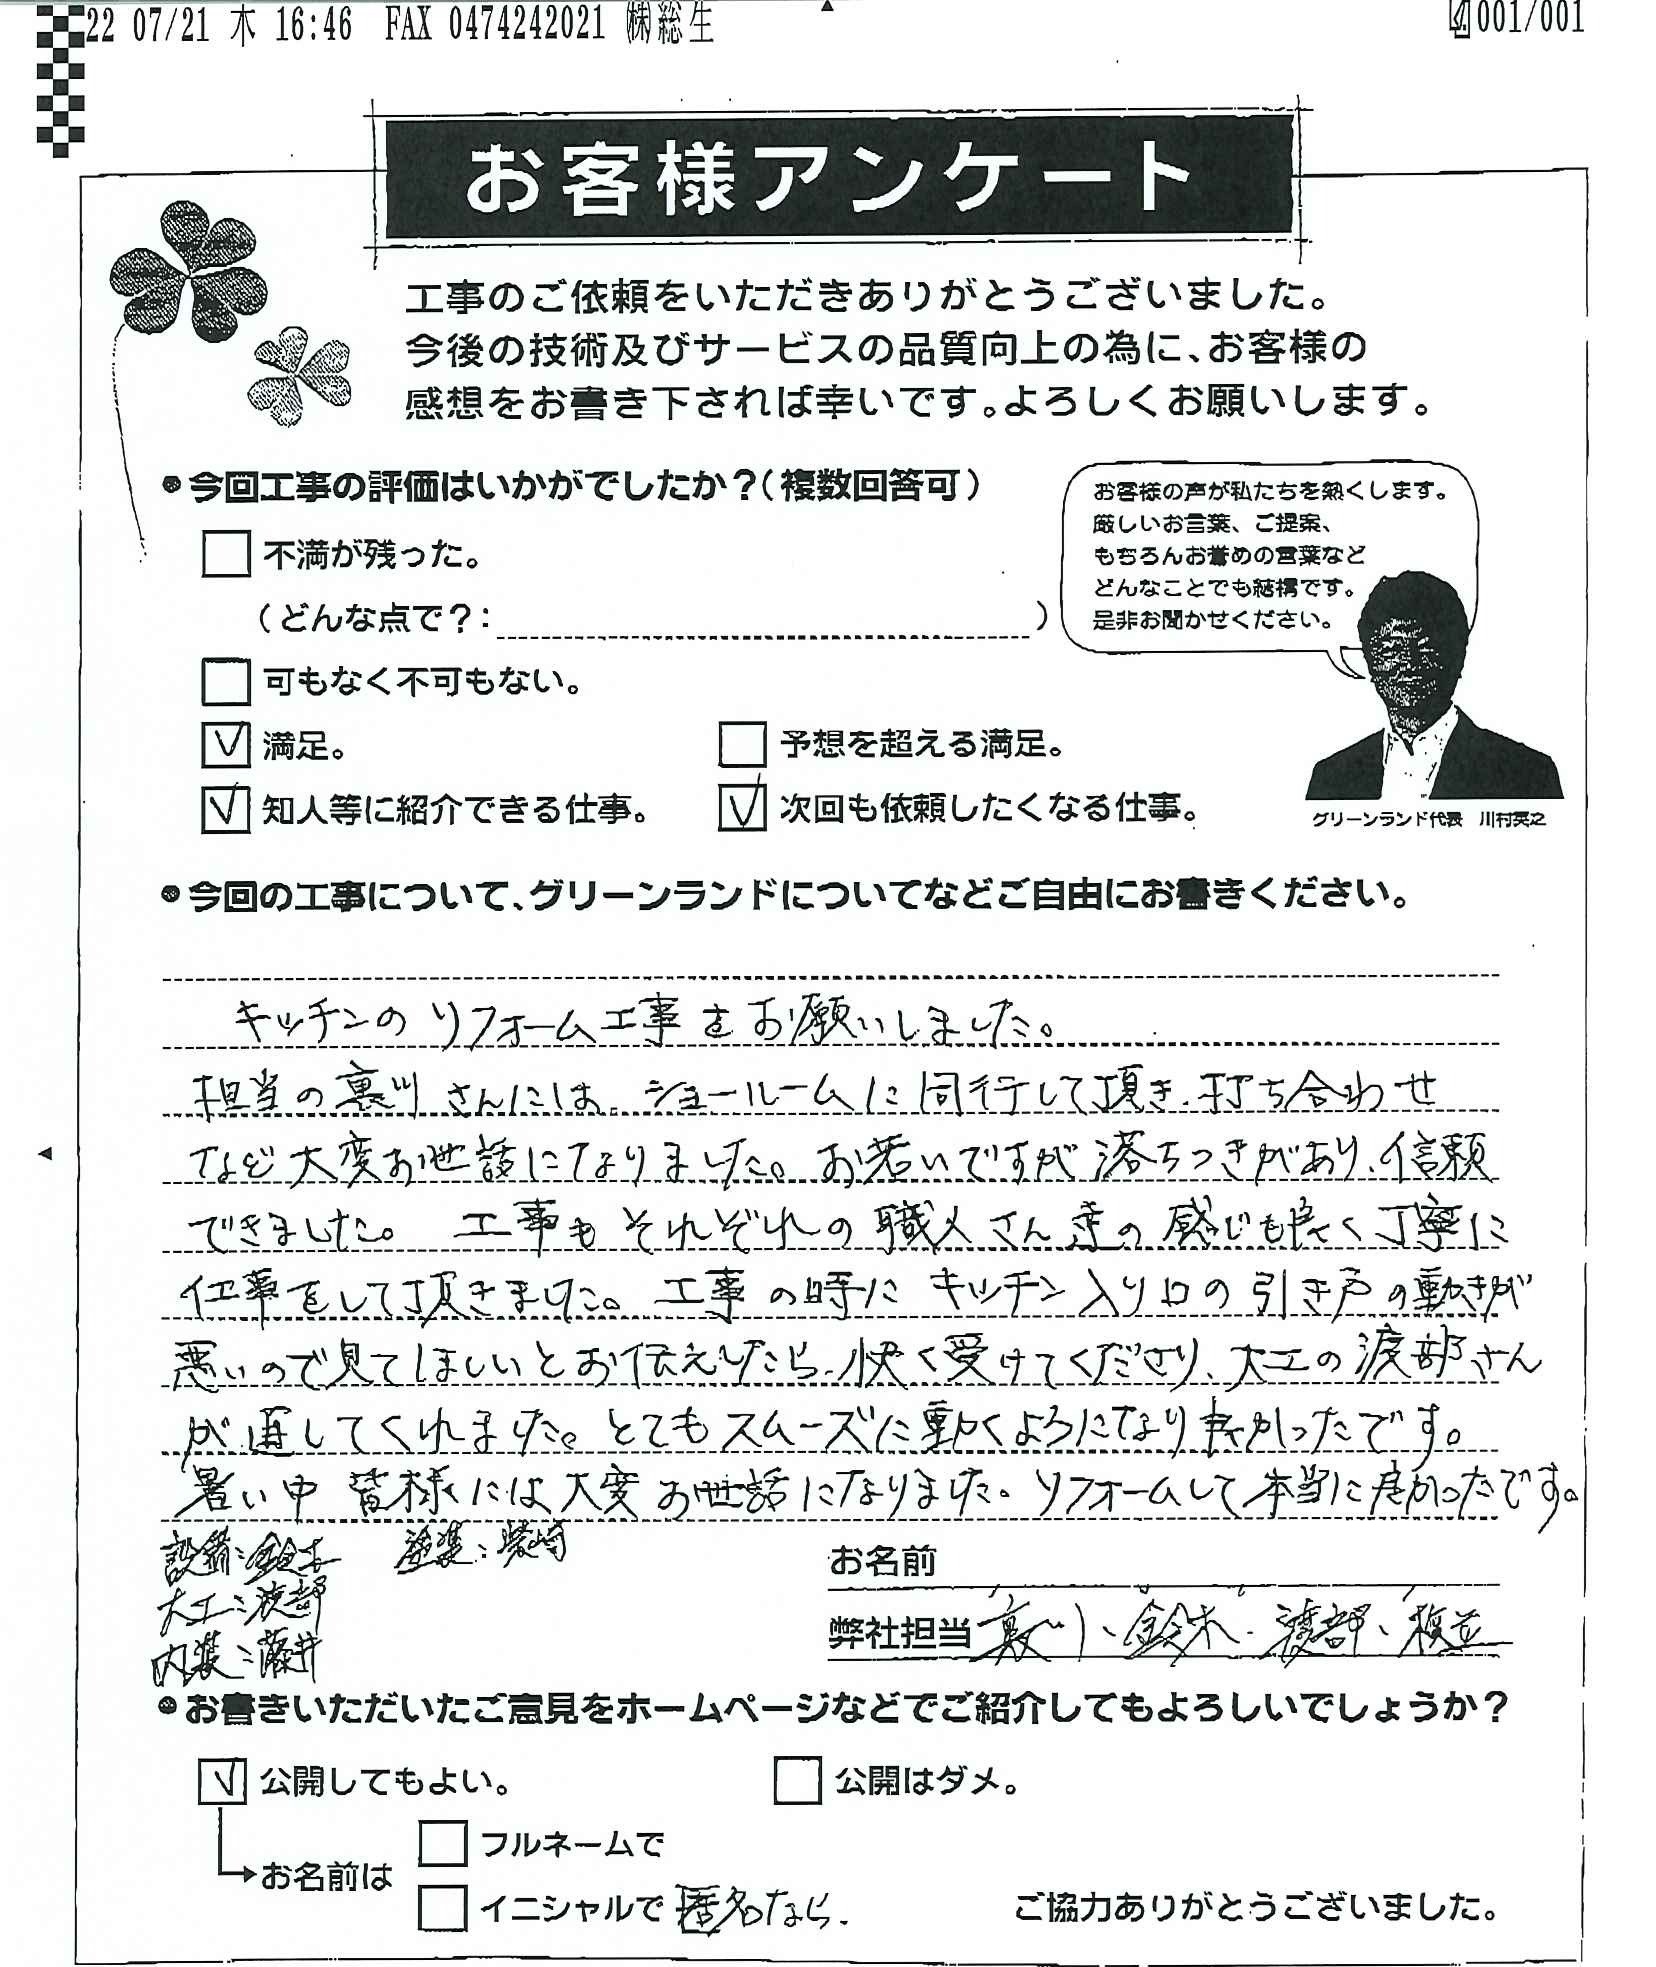 22 07/21 木 16:46 FAX 0474242021 ㈱総生
001/001
お客様アンケート
工事のご依頼をいただきありがとうございました。
今後の技術及びサービスの品質向上の為に、お客様の
感想をお書き下されば幸いです。よろしくお願いします。
今回工事の評価はいかがでしたか？（複数回答可）
お客様の声が私たちを熱くします。
厳しいお言葉、ご提案、
もちろんお誉めの言葉など
どんなことでも結構です。
是非お聞かせください。
不満が残った。
（どんな点で？： ）
可もなく不可もない。
満足。 予想を超える満足。
知人等に紹介できる仕事。 次回も依頼したくなる仕事。
グリーンランド代表 川村英之
今回の工事について、グリーンランドについてなどご自由にお書きください。
キッチンのリフォーム工事をお願いしました。
担当の裏川さんには、ショールームに同行して頂き、打ち合わせ
など大変お世話になりました。お若いですが落ちつきがあり、信頼
できました。 工事もそれぞれの職人さん達の感じも良く丁寧に
仕事をして頂きました。工事の時にキッチン入り口の引き戸の動きが
悪いので見てほしいとお伝えしたら、快く受けてくださり、大工の渡部さん
が直してくれました。とてもスムーズに動くようになり良かったです。
暑い中 皆様には大変お世話になりました。リフォームして本当に良かったです。
設備：鈴木 塗装：柴崎
大工：渡部
内装：藤井
お名前
弊社担当 裏川、鈴木、渡部、
お書きいただいたご意見をホームページなどでご紹介してもよろしいでしょうか？
公開してもよい。 公開はダメ。
お名前は
フルネームで
イニシャルで 匿名なら、
ご協力ありがとうございました。